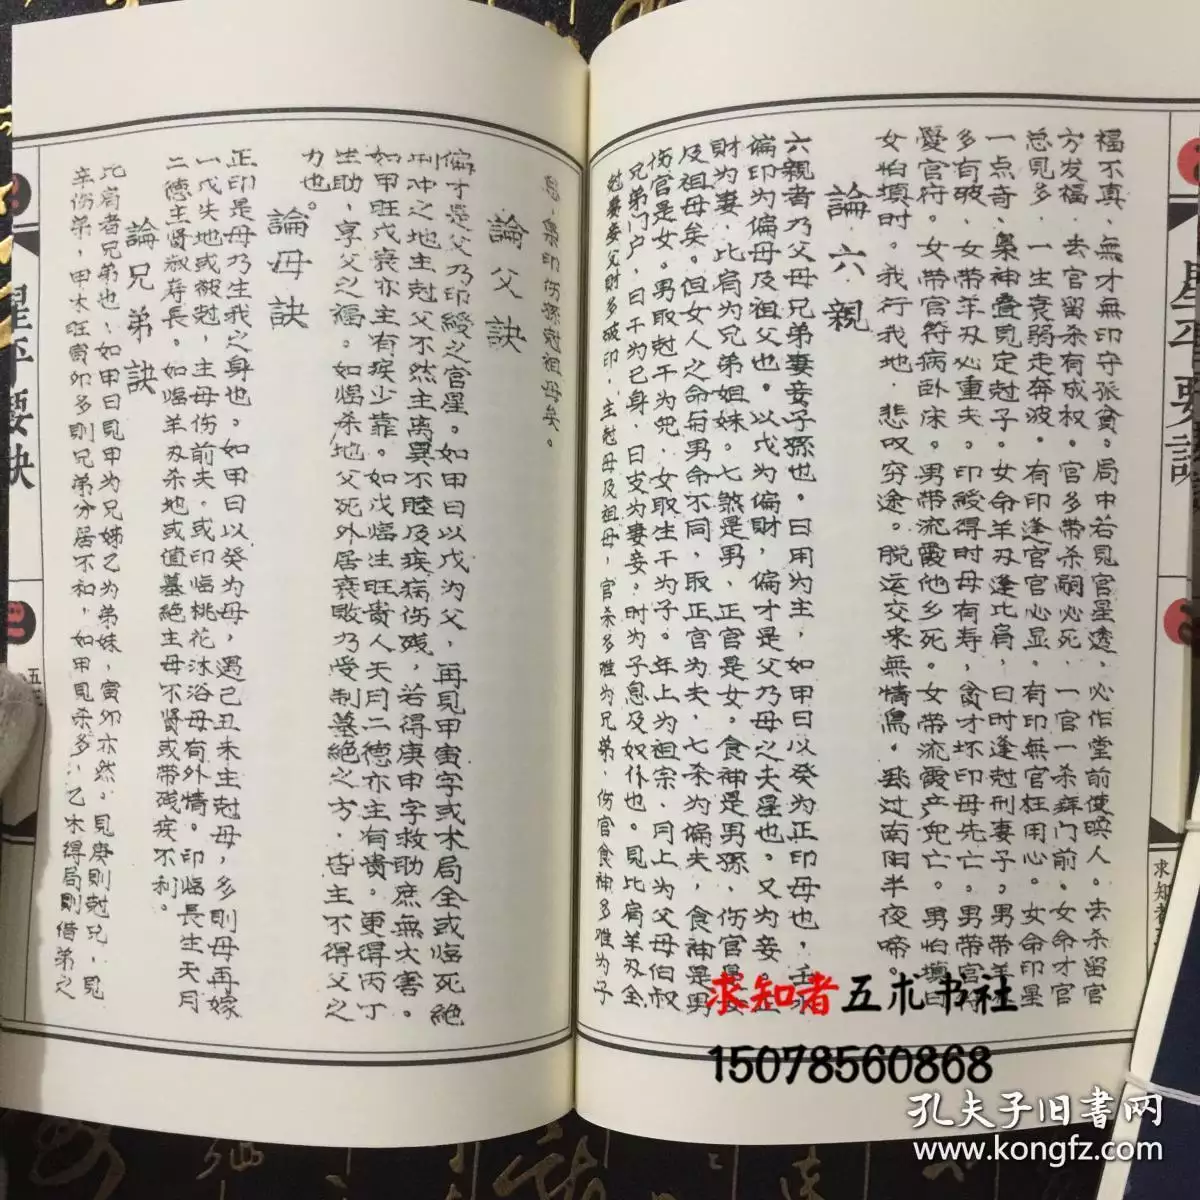 福不真，無才無印守孤貧。局中若見官星透，必作堂前使喚人。去杀留官
方发福，去官留杀有成权。官多带杀嗣必死，一官一杀病门前。女命才官
总見多，一生衰弱走奔波。有印逢官官必显。有印無官枉用心。女命印星
一点奇，梟神叠見定尅子。女命羊刃逢比肩，日时逢尅刑妻子。男带羊
多有破，女带羊刃必重夫。印綬得时母有寿，貪才坏印母先亡。男带官符
愛官府。女带官符病卧床。男带流霞他乡死。女带流霞产免亡。男怕填日
女怕填时。我行我地，悲叹穷途。脱运交来無情焉。
論六親
六親者乃父母兄弟妻妾子孫也。日用为主，如甲日以癸为正印母也，壬
偏印为偏母及祖父也。以戊为偏財，偏才是父乃母之夫星也。又为妾。正
財为妻，比肩为兄弟姐妹。七煞是男，正官是女。食神是男孫，伤官是
及祖母矣。但女人之命与男命不同，取正官为夫，七杀为偏夫，食神是男
伤官是女。男取尅干为兜，女取生干为子。年上为祖宗，月上为父母伯叔
兄弟门户，日干为已身，日支为妻妾。时为子息及奴仆也。見比肩羊刃全
尅妻妾父財多破印，主尅母及祖母，官杀多难为兄弟，伤官食神多难为子
息，梟印伤孫尅祖母矣。
論父訣
偏才是父乃印綬之官星。如甲日以戊为父，再見甲寅字或木局全或临死絕
刑冲之地主尅父不然主离異不睦及疾病伤残，若得庚申字救助庶無大害。
如甲旺戊衰亦主有疾少靠。如戊临生旺贵人天月二德亦主有貴。更得丙丁
生助，享父之福。如临杀地父死外居衰敗乃受制墓絕之方，皆主不得父之
力也。
論母訣
正印是母乃生我之身也。如甲日以癸为母，遇己丑未主尅母，多則母再嫁
一戊失地或被尅，主母伤前夫。或印临桃花沐浴母有外情。印临長生天月
二德主賢淑寿長。如临羊刃杀地或值墓絕主母不賢或带残疾不利。
論兄弟訣
比肩者兄弟也，如甲日見甲为兄姊乙为弟妹，寅卯亦然。見庚則尅兄，見
辛伤弟，甲木旺寅卯多則兄弟分居不和，如甲見杀多，乙木得局則借弟之
星平要訣
求知者五术书社
15078560868
孔夫子旧書网
www.kongfz.com